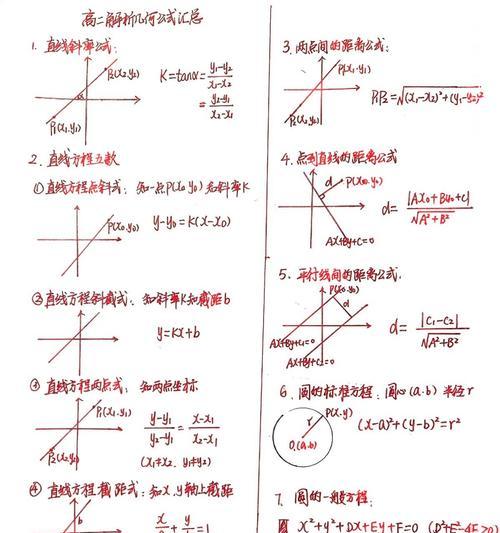 高二解析几何公式汇总
1. 直线斜率公式:
P2(x2,y2)
P1(x1,y1)
K=tanα=\frac{y1-y2}{x1-x2}
=\frac{y2-y1}{x2-x1}
2. 直线方程五数
①直线方程点斜式: 知一点P(x0,y0)知斜率K
P(x0,y0)
y-y0=K(x-x0)
③直线方程斜截式: 知斜率K知截距b
y=Kx+b
直线方程两点式: 知两点坐标
P1(x1,y1)
P2(x2,y2)
\frac{y-y1}{y2-y1}=\frac{x-x1}{x2-x1}
(x1≠x2. y1≠y2)
④直线方程截距式: 知x.y轴上截距
b
\frac{x}{a}+\frac{y}{b}=1
3. 两点间的距离公式:
P1(x1,y1)
P1P2=√(x1-x2)²+(y1-y2)²
4. 点到直线的距离公式
d
P(x0,y0)
Ax+By+C=0
d=\frac{|Ax0+By0+C|}{√A²+B²}
5. 平行线间的距离公式.
P(x0,y0)
d
Ax+By+C1=0
Ax+By+C2=0
d=\frac{|C1-C2|}{√A²+B²}
6. 圆的标准方程. 圆心(a.b) 半径r
P(x.y)
r
O(a.b)
(x-a)²+(y-b)²=r²
7. 圆的一般方程:
圆 x²+y²+Dx+Ey+F=0 (D²+E²-4F≥0)